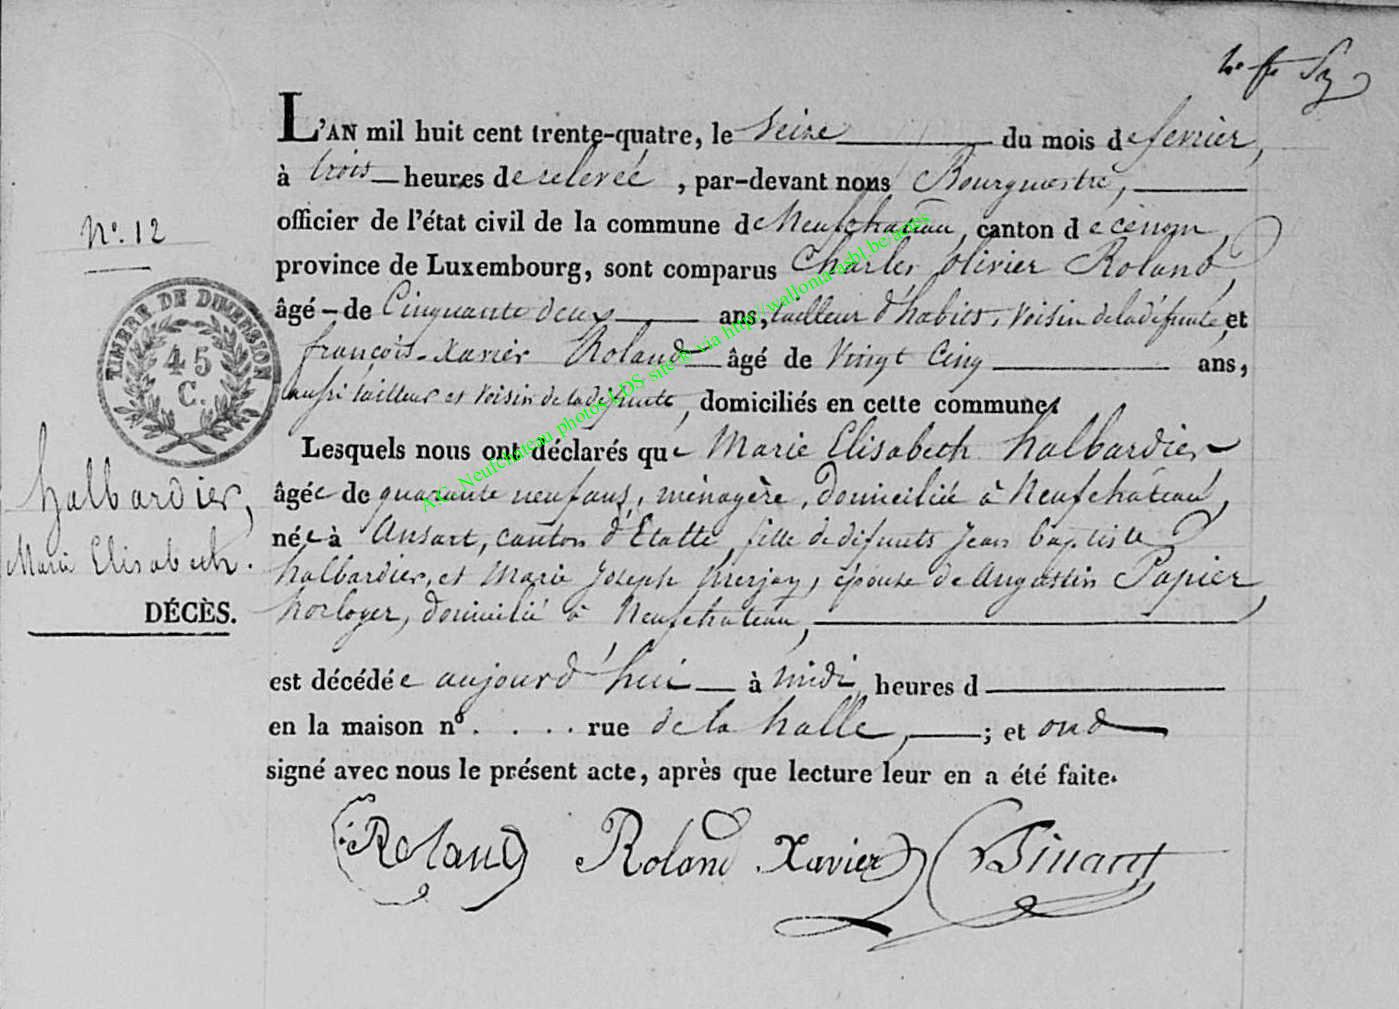 L'AN mil huit cent trente-quatre, le seize du mois de fevrier,
à trois heures de relevée, par-devant nous Bourgmestre,
N°. 12
officier de l'état civil de la commune de Neufchateau, canton d
province de Luxembourg, sont comparus Charles Olivier Roland,
âgé de Cinquante deux ans, tailleur d'habits, Voisin de la défunte, et
françois-Xavier Roland âgé de Vingt Cinq ans,
aussi tailleur et Voisin de la défunte, domiciliés en cette commune.
TIMBRE DE DIMENSION
45
C.
Lesquels nous ont déclarés que Marie Elisabeth halbardier
âgée de quarante neuf ans, ménagère, domiciliée à Neufchateau,
née à Ansart, canton d'Etalle, fille de defunts Jean baptiste
halbardier, et Marie Joseph épouse de Augustin Papier
horloger, domicilié à Neufchateau,
halbardier,
Marie Elisabeth.
DÉCÈS.
est décédée aujourd'hui à midi heures d
en la maison n° . . . . rue de la halle, ; et ont
signé avec nous le présent acte, après que lecture leur en a été faite.
Roland Roland Xavier Dinant
A.C. Neufchateau photos LDS site via http://wallonia-asbl.be/actes